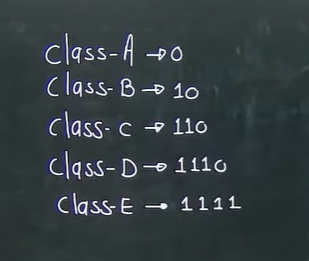 Class-A → 0
Class-B → 10
Class-C → 110
Class-D → 1110
Class-E → 1111